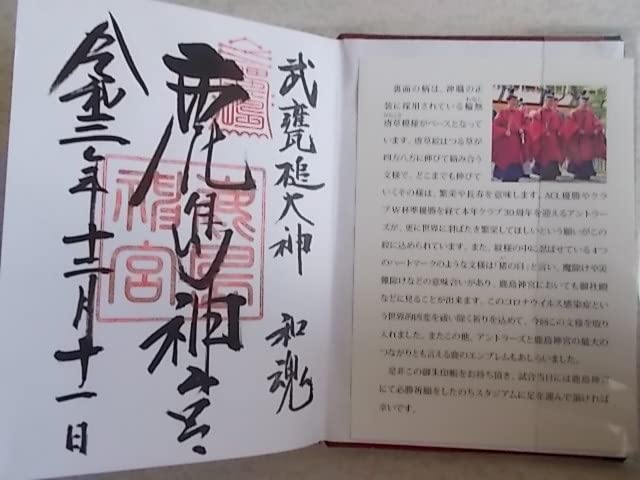 武甕槌大神 和魂
鹿島神宮
鹿島神宮
令和三年十二月十一日
裏面の柄は、神職の正
装に採用されている輪無
唐草模様がベースとなって
います。唐草絵はつる草が
四方八方に伸びて絡み合う
文様で、どこまでも伸びて
いくその様は、繁栄や長寿を意味します。ACL優勝やクラ
ブW杯準優勝を経て本年クラブ30周年を迎えるアントラー
ズが、更に世界に羽ばたき繁栄してほしいという願いがこの
絵に込められています。また、紋様の中に忍ばせている4つ
のハートマークのような文様は「猪の目」と言い、魔除けや災
難除けなどの意味合いがあり、鹿島神宮においても御社殿
などに見ることが出来ます。このコロナウイルス感染症とい
う世界的凶変を祓い除く祈りを込めて、今回この文様を取り
入れました。またこの他、アントラーズと鹿島神宮の最大の
つながりとも言える鹿のエンブレムもあしらいました。
是非この御朱印帳をお持ち頂き、試合当日には鹿島神宮
にて必勝祈願をしたのちスタジアムに足を運んで頂ければ
幸いです。